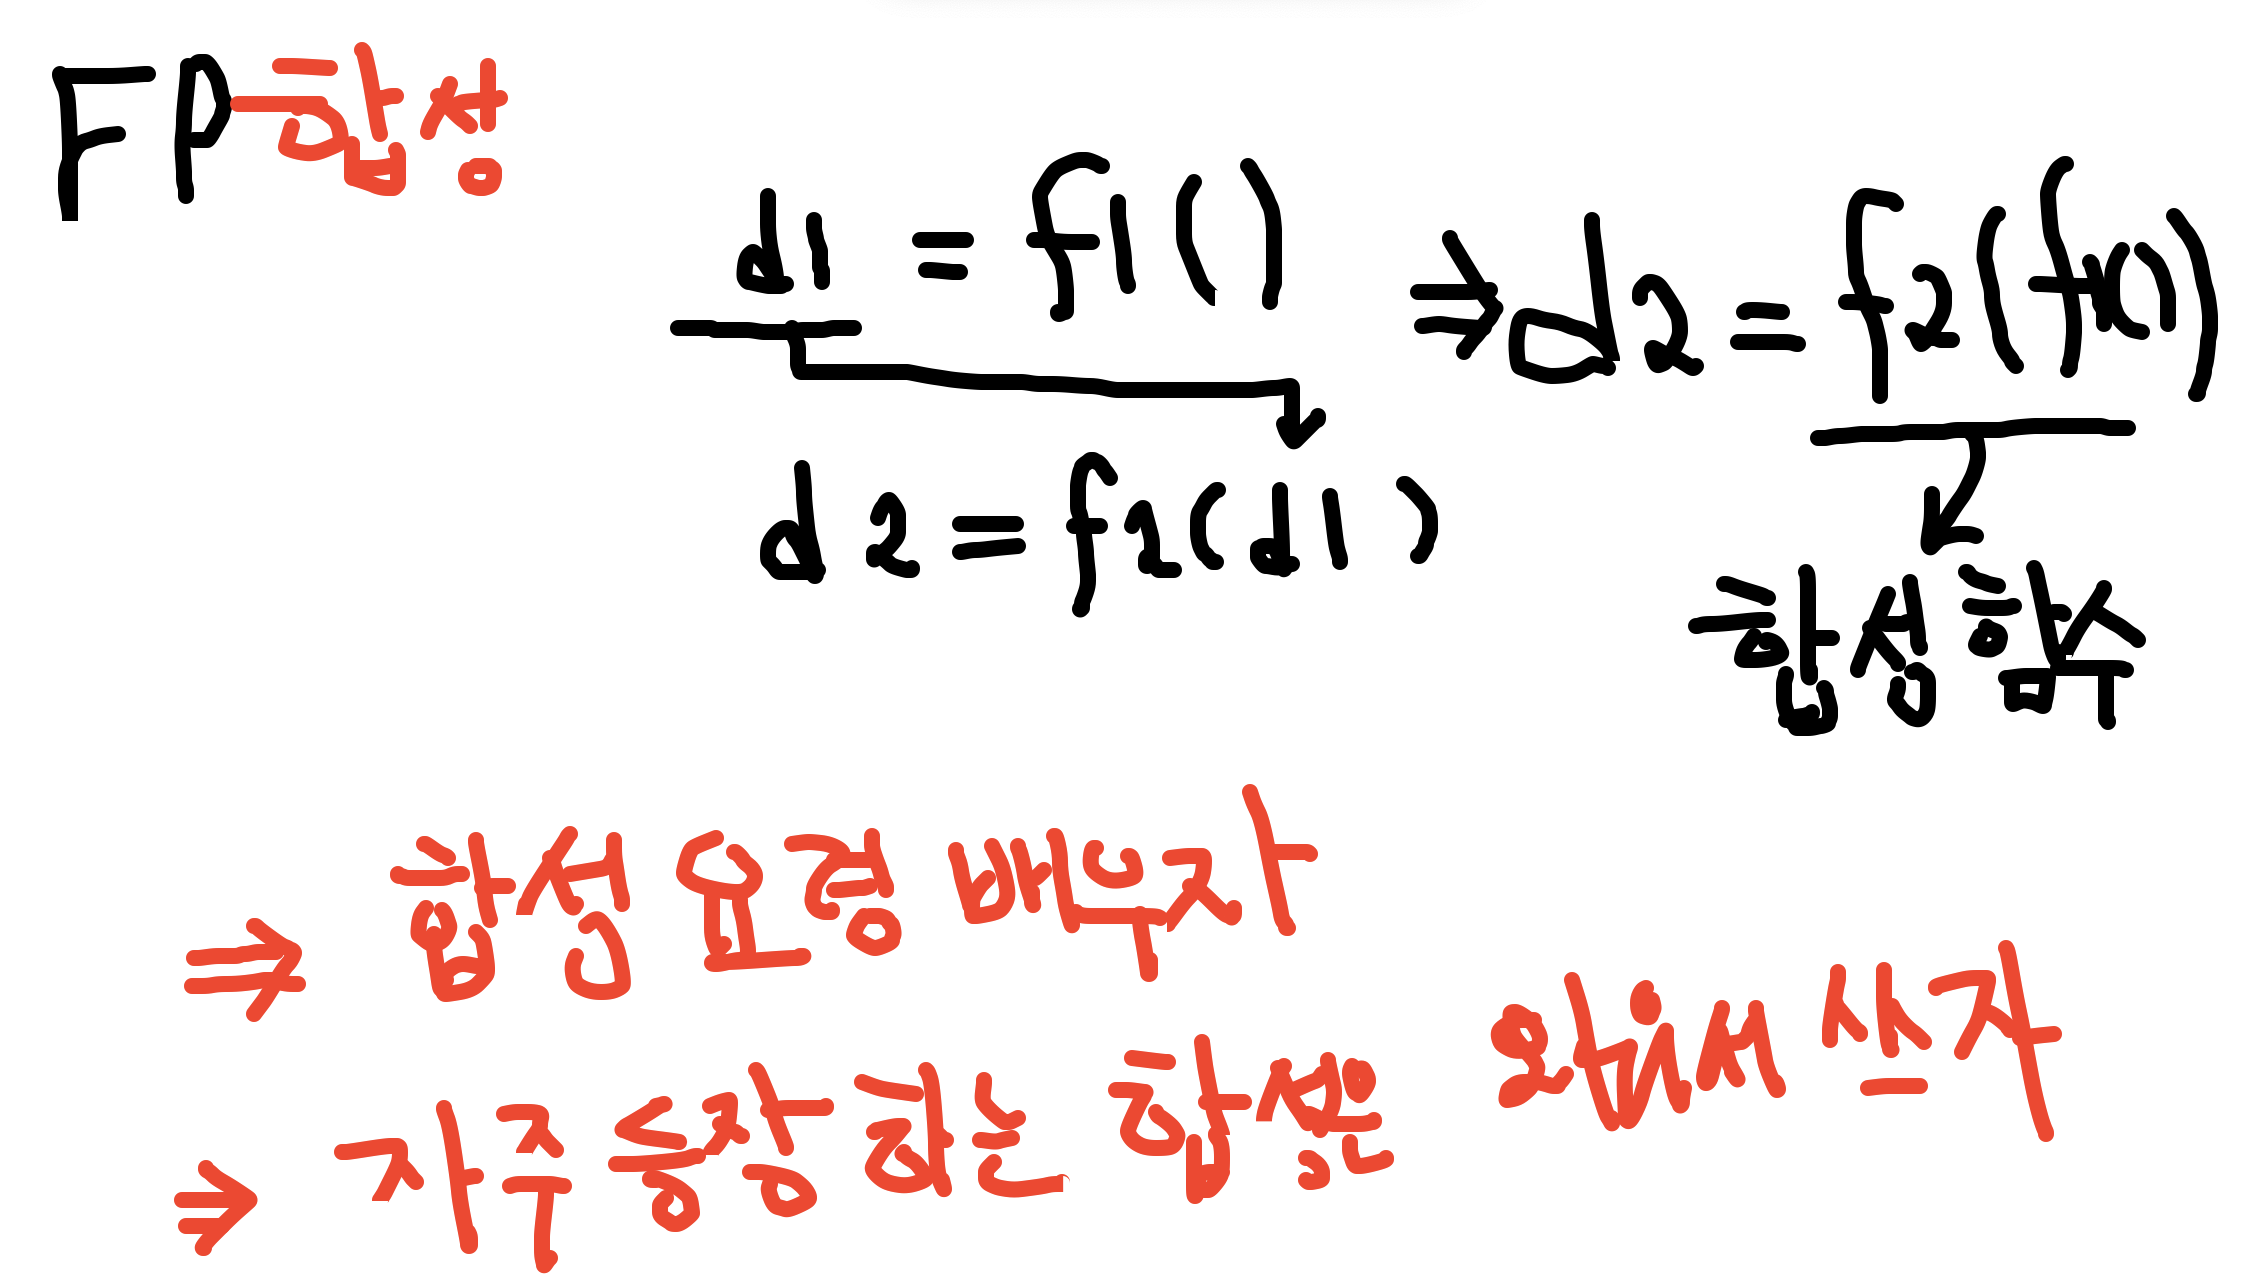 FP 합성
d1 = f1() ⇒ d2 = f2(f1())
d2 = f2(d1)
합성함수
⇒ 합성 요령 배우자
⇒ 자주 등장하는 합성은 외워서 쓰자